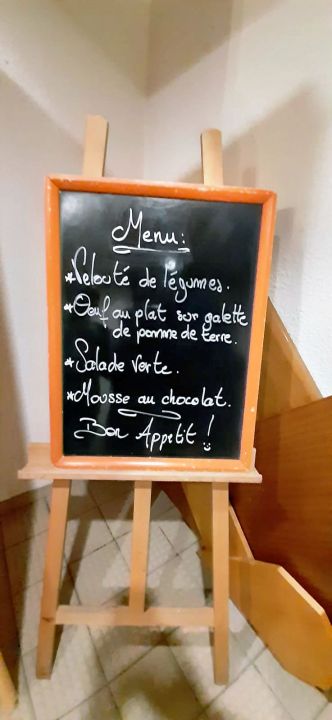 Menu:
*Velouté de légumes.
*Oeuf au plat sur galette
de pomme de terre.
*Salade verte.
*Mousse au chocolat.
Bon Appetit !